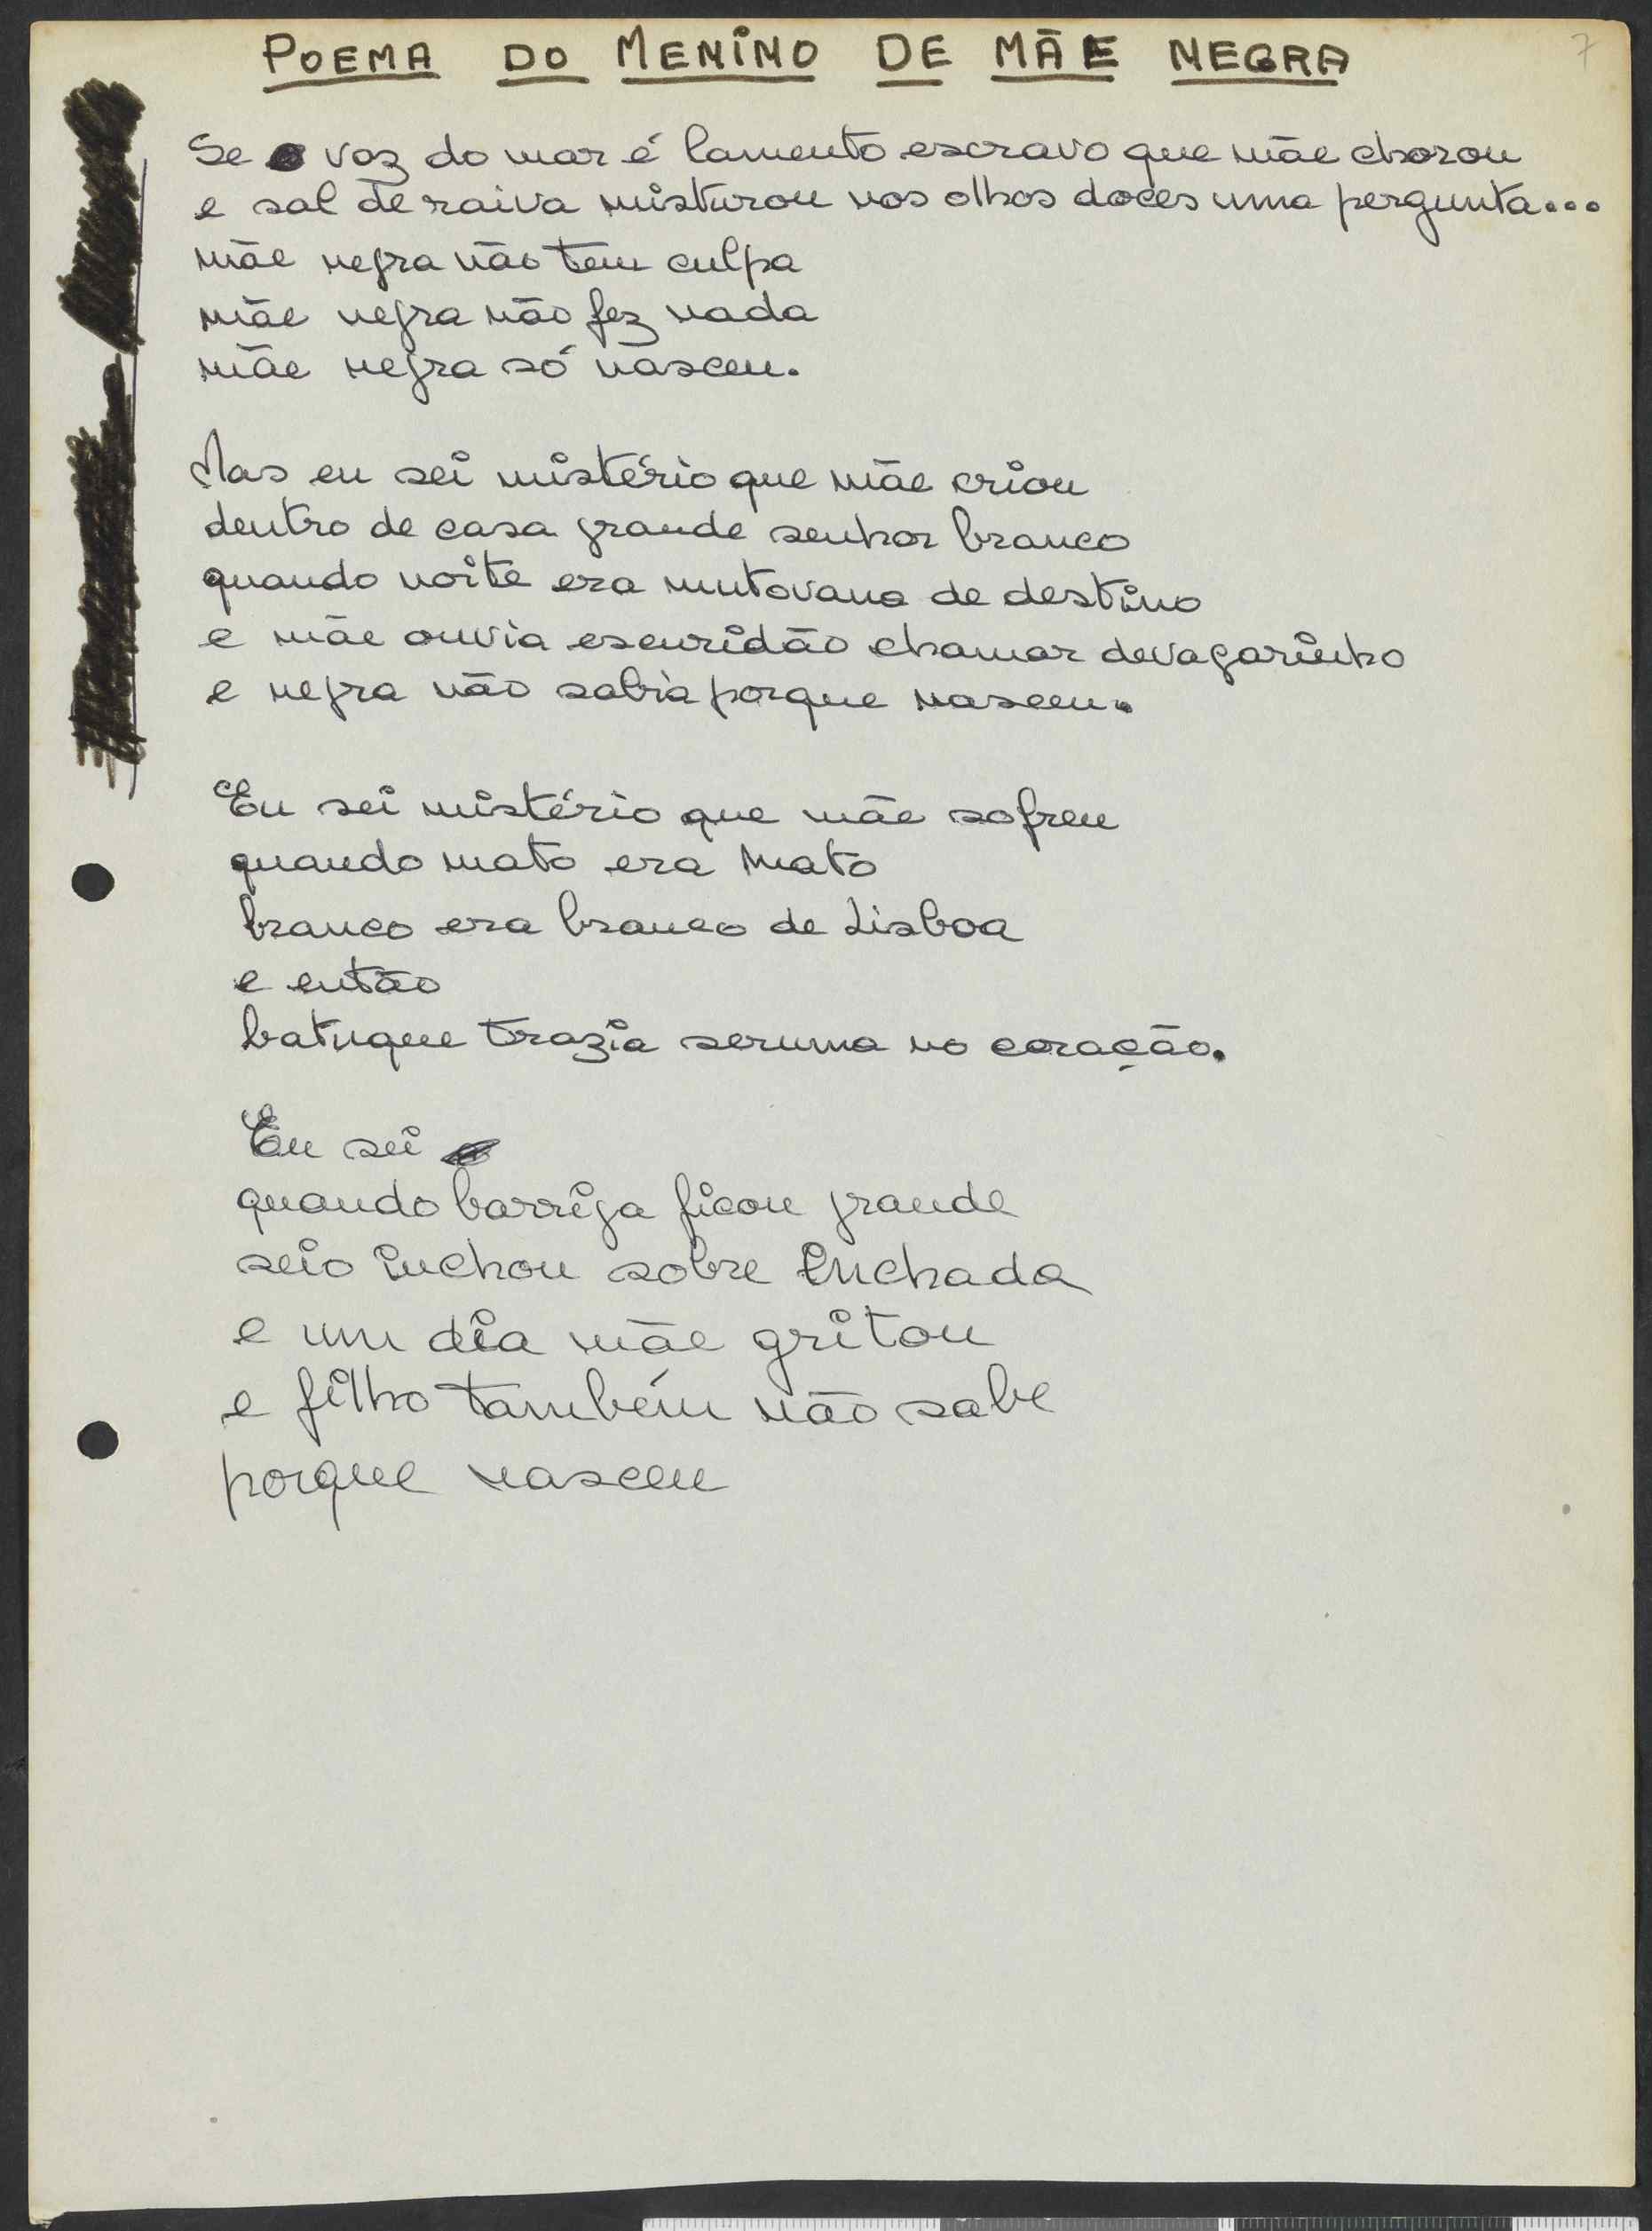 POEMA DO MENINO DE MÃE NEGRA
7
Se voz do mar é lamento escravo que mãe chorou
e sal de raiva misturou nos olhos doces uma pergunta...
mãe negra não tem culpa
mãe negra não fez nada
mãe negra só nasceu.
Mas eu sei mistério que mãe criou
dentro de casa grande senhor branco
quando noite era mutovana de destino
e mãe ouvia escuridão chamar devagarinho
e negra não sabia porque nasceu.
Eu sei mistério que mãe sofreu
quando mato era mato
branco era branco de Lisboa
e então
batuque trazia seruma no coração.
Eu sei
quando barriga ficou grande
seio inchou sobre inchada
e um dia mãe gritou
e filho também não sabe
porque nasceu